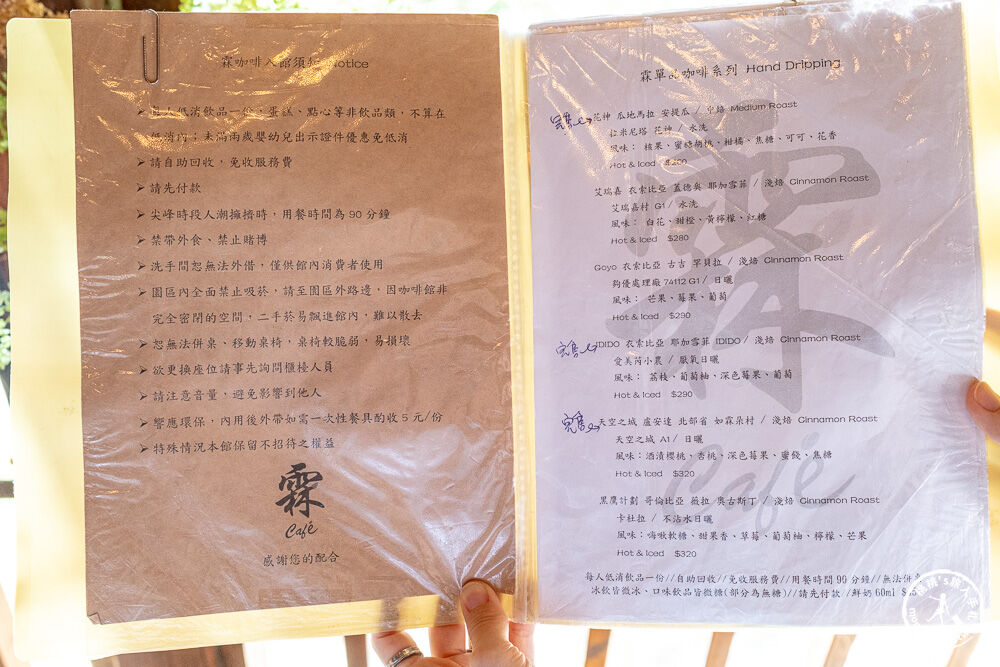 霖咖啡入館須知 Notice
➤ 每人低消飲品一份，蛋糕、點心等非飲品類，不算在
低消內；未滿兩歲嬰幼兒出示證件優惠免低消
➤ 請自助回收，免收服務費
➤ 請先付款
➤ 尖峰時段人潮擁擠時，用餐時間為 90 分鐘
➤ 禁帶外食、禁止賭博
➤ 洗手間恕無法外借，僅供館內消費者使用
➤ 園區內全面禁止吸菸，請至園區外路邊，因咖啡館非
完全密閉的空間，二手菸易飄進館內，難以散去
➤ 恕無法併桌、移動桌椅，桌椅較脆弱，易損壞
➤ 欲更換座位請事先詢問櫃檯人員
➤ 請注意音量，避免影響到他人
➤ 響應環保，內用後外帶如需一次性餐具酌收 5 元/份
➤ 特殊情況本館保留不招待之權益
霖
Café
感謝您的配合
霖單品咖啡系列 Hand Dripping
完售 花神 瓜地馬拉 安提瓜 / 中焙 Medium Roast
拉米尼塔 花神 / 水洗
風味： 核果、蜜糖胡桃、柑橘、焦糖、可可、花香
Hot & Iced $260
艾瑞嘉 衣索比亞 蓋德奧 耶加雪菲 / 淺焙 Cinnamon Roast
艾瑞嘉村 G1 / 水洗
風味： 白花、甜橙、黃檸檬、紅糖
Hot & Iced $280
Goyo 衣索比亞 古吉 罕貝拉 / 淺焙 Cinnamon Roast
夠優處理廠 74112 G1 / 日曬
風味： 芒果、莓果、葡萄
Hot & Iced $290
完售 IDIDO 衣索比亞 耶加雪菲 IDIDO / 淺焙 Cinnamon Roast
愛美芮小農 / 厭氧日曬
風味： 荔枝、葡萄柚、深色莓果、葡萄
Hot & Iced $290
完售 天空之城 盧安達 北部省 如霖朵村 / 淺焙 Cinnamon Roast
天空之城 A1 / 日曬
風味：酒漬櫻桃、杏桃、深色莓果、蜜餞、焦糖
Hot & Iced $320
黑鷹計劃 哥倫比亞 薇拉 奧古斯丁 / 淺焙 Cinnamon Roast
卡杜拉 / 不沾水日曬
風味：嗨啾軟糖、甜果香、草莓、葡萄柚、檸檬、芒果
Hot & Iced $320
霖
Café
每人低消飲品一份//自助回收//免收服務費//用餐時間 90 分鐘//無法併
冰飲皆微冰、口味飲品皆微糖(部分為無糖)//請先付款 //鮮奶 60ml